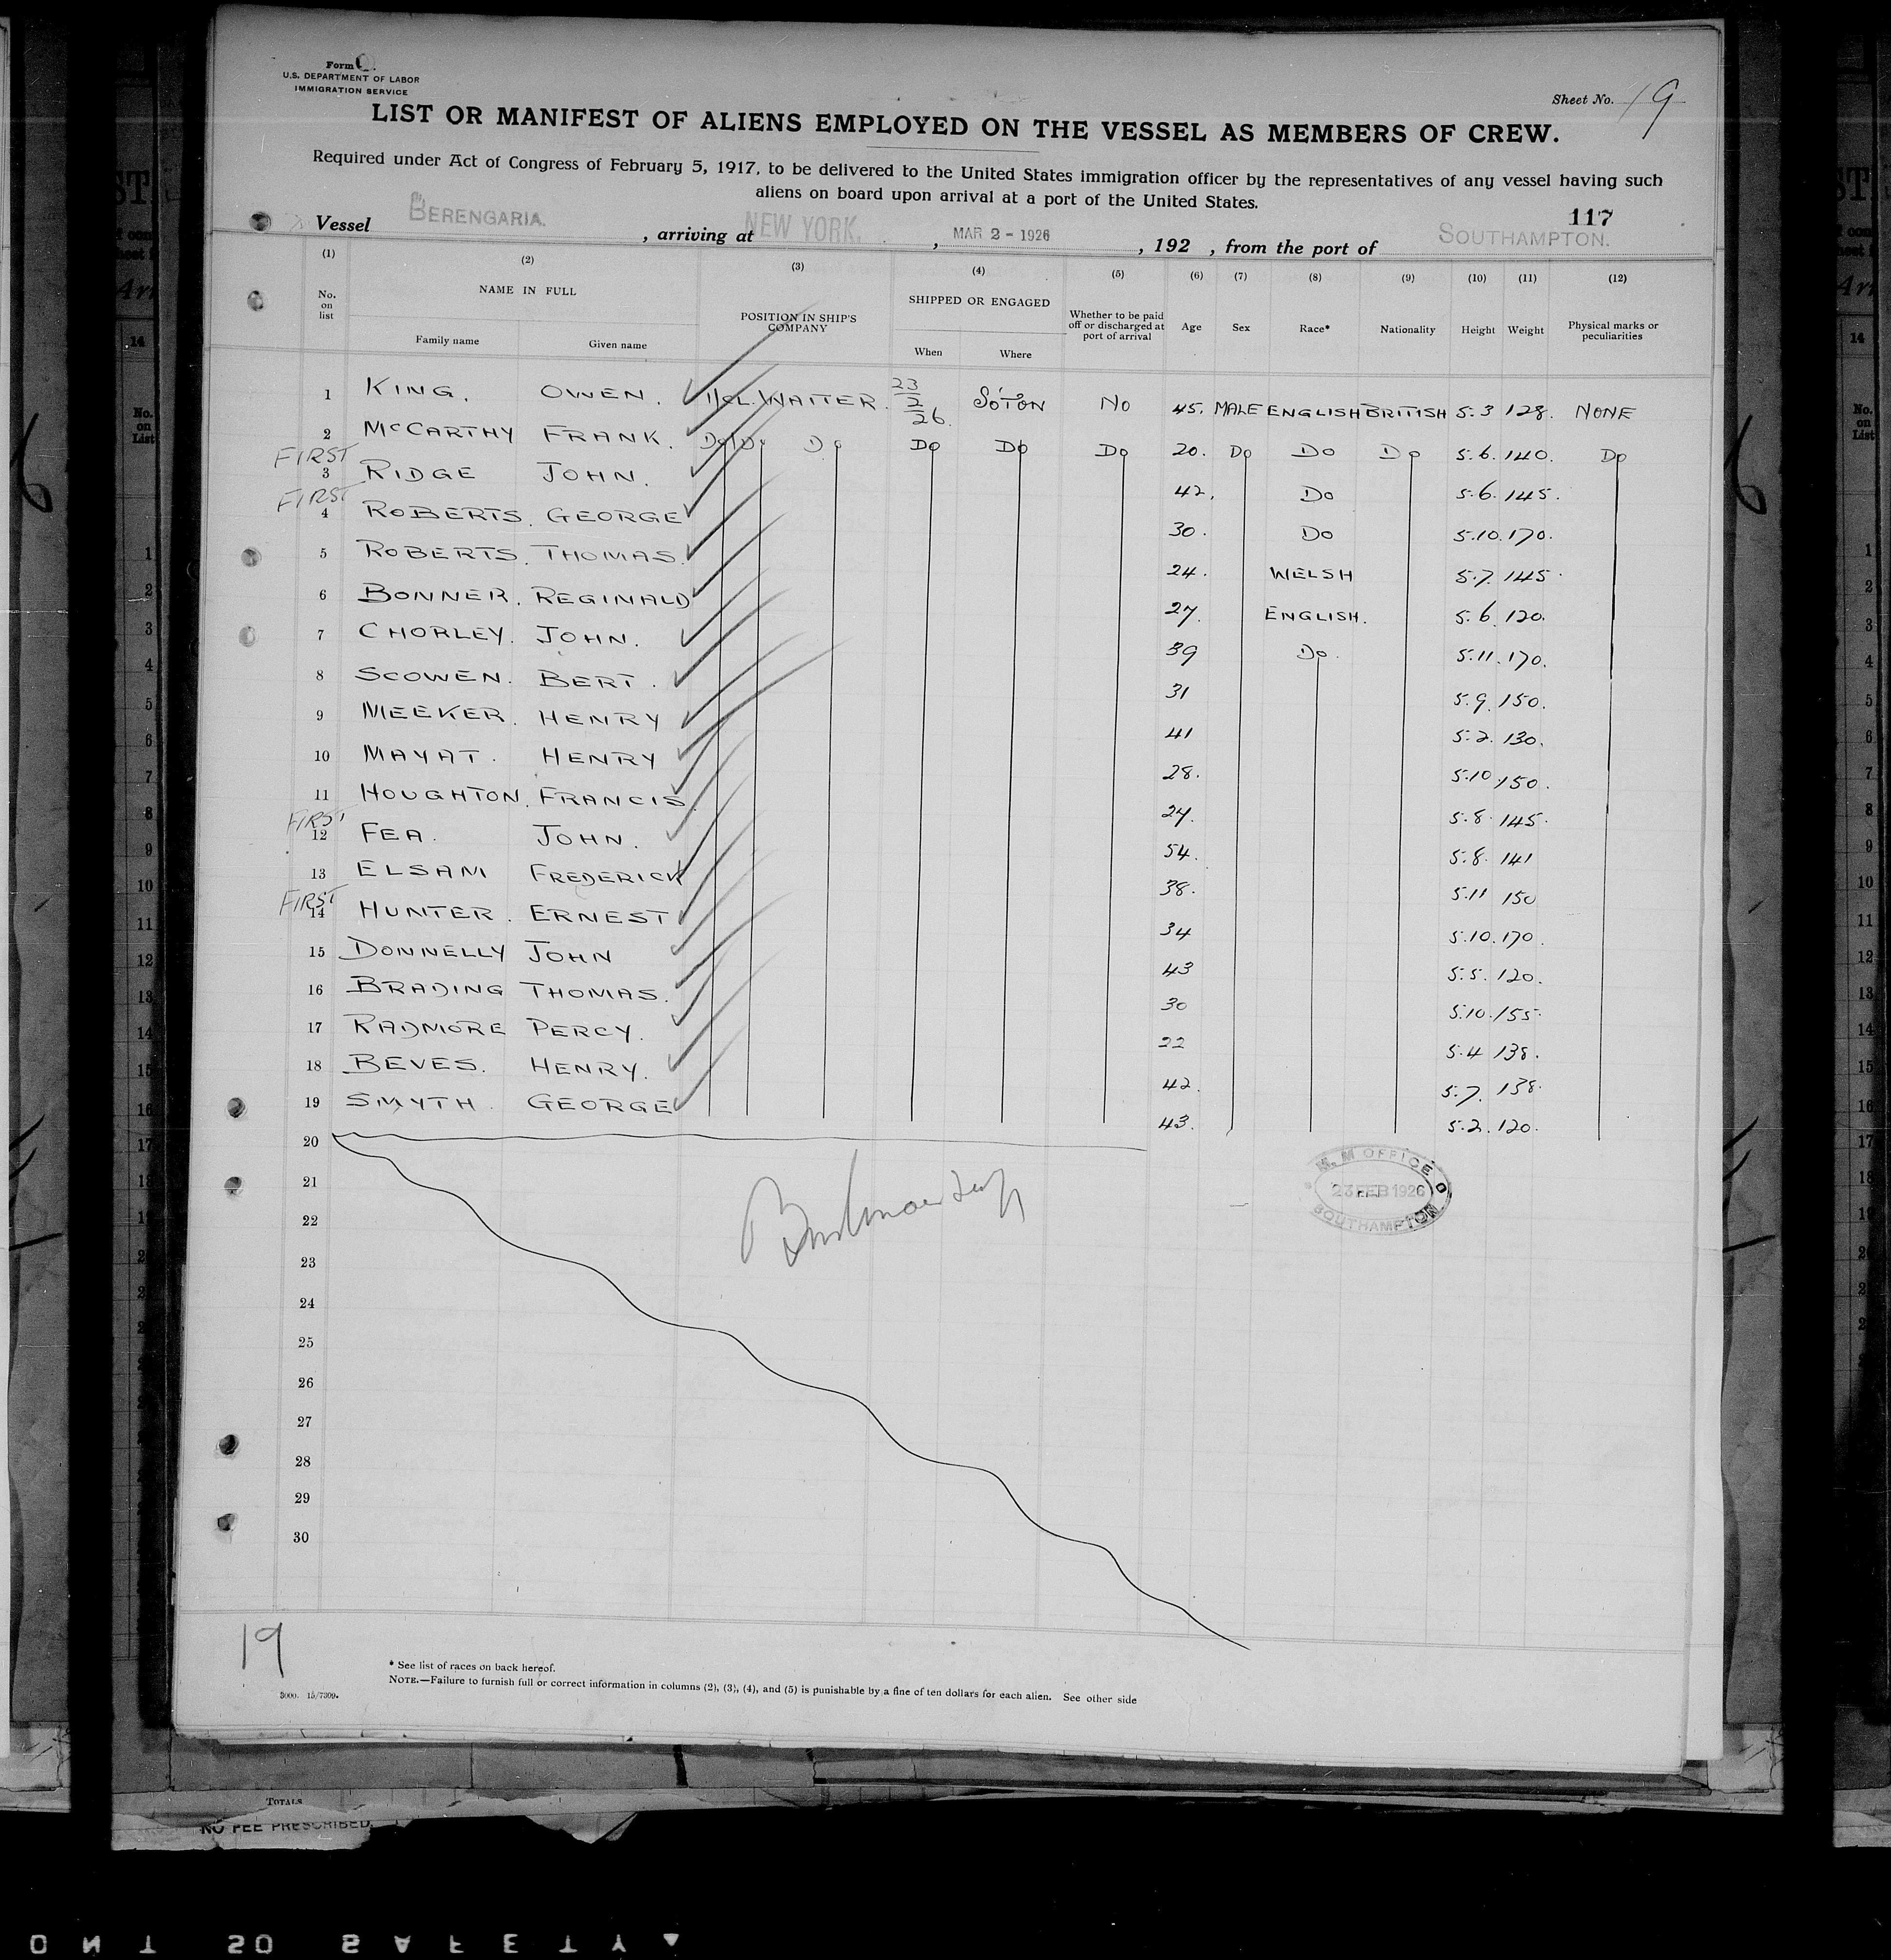 Form
U.S. DEPARTMENT OF LABOR
IMMIGRATION SERVICE
Sheet No. 19
LIST OR MANIFEST OF ALIENS EMPLOYED ON THE VESSEL AS MEMBERS OF CREW.
Required under Act of Congress of February 5, 1917, to be delivered to the United States immigration officer by the representatives of any vessel having such
aliens on board upon arrival at a port of the United States.
117
Vessel BERENGARIA. , arriving at NEW YORK. , MAR 2 - 1926 , 192 , from the port of SOUTHAMPTON.
(1) (2) (3) (4) (5) (6) (7) (8) (9) (10) (11) (12)
No. on list NAME IN FULL POSITION IN SHIP'S COMPANY SHIPPED OR ENGAGED Whether to be paid off or discharged at port of arrival Age Sex Race* Nationality Height Weight Physical marks or peculiarities
Family name Given name When Where
1 KING. OWEN. WAITER. 23/2/26 SO'TON NO 45. MALE ENGLISH BRITISH 5.3 128. NONE
2 McCARTHY FRANK. Do Do Do Do Do Do 20. Do Do Do 5.6. 140. Do
FIRST
3 RIDGE JOHN. 42. Do 5.6. 145.
FIRST
4 ROBERTS. GEORGE 30. Do 5.10. 170.
5 ROBERTS. THOMAS. 24. WELSH 5.7. 145.
6 BONNER. REGINALD 27. ENGLISH. 5.6. 120.
7 CHORLEY. JOHN. 39 Do. 5.11. 170.
8 SCOWEN. BERT. 31 5.9. 150.
9 MEEKER. HENRY 41 5.2. 130.
10 MAYAT. HENRY 28. 5.10. 150.
11 HOUGHTON. FRANCIS. 27. 5.8. 145.
FIRST
12 FEA. JOHN. 54. 5.8. 141
13 ELSAM FREDERICK 38. 5.11 150
FIRST
14 HUNTER. ERNEST 34 5.10. 170.
15 DONNELLY JOHN 43 5.5. 120.
16 BRADING THOMAS. 30 5.10. 155.
17 RADMORE PERCY. 22 5.4 138.
18 BEVES. HENRY. 42. 5.7. 138.
19 SMYTH. GEORGE 43. 5.2. 120.
20
M. M OFFICE
23 FEB 1926
SOUTHAMPTON
21
22
23
24
25
26
27
28
29
30
19
* See list of races on back hereof.
NOTE.—Failure to furnish full or correct information in columns (2), (3), (4), and (5) is punishable by a fine of ten dollars for each alien. See other side
3000. 15/7309.
TOTALS
NO FEE PRESCRIBED.
SAFETY